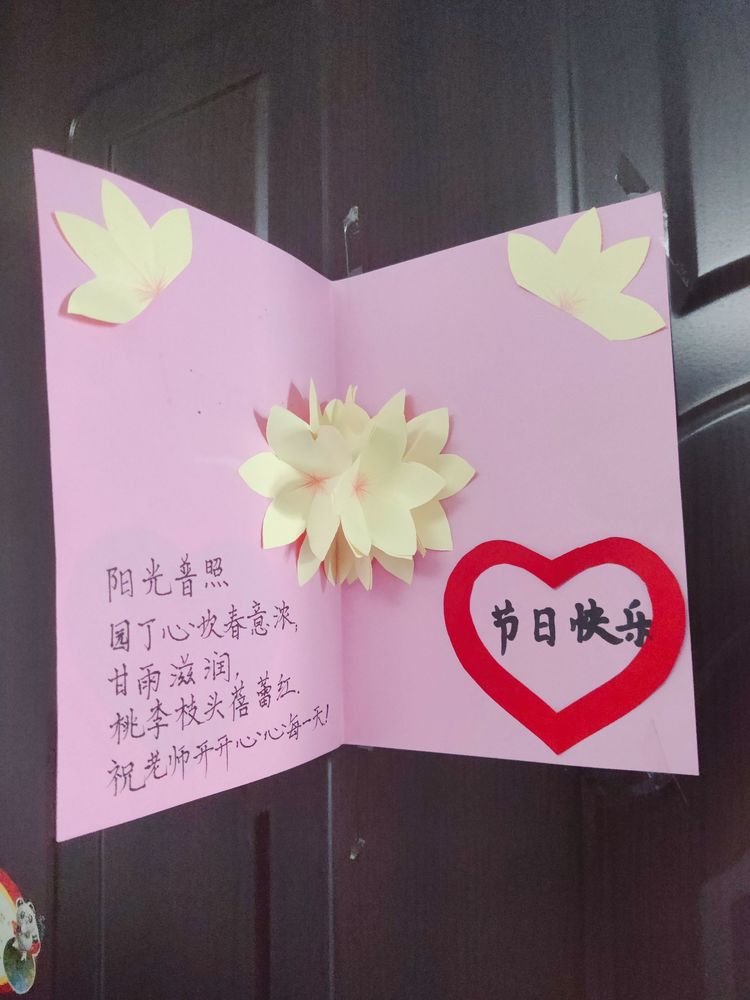 阳光普照
园丁心坎春意浓;
甘雨滋润,
桃李枝头蓓蕾红.
祝老师开开心心每一天!
节日快乐